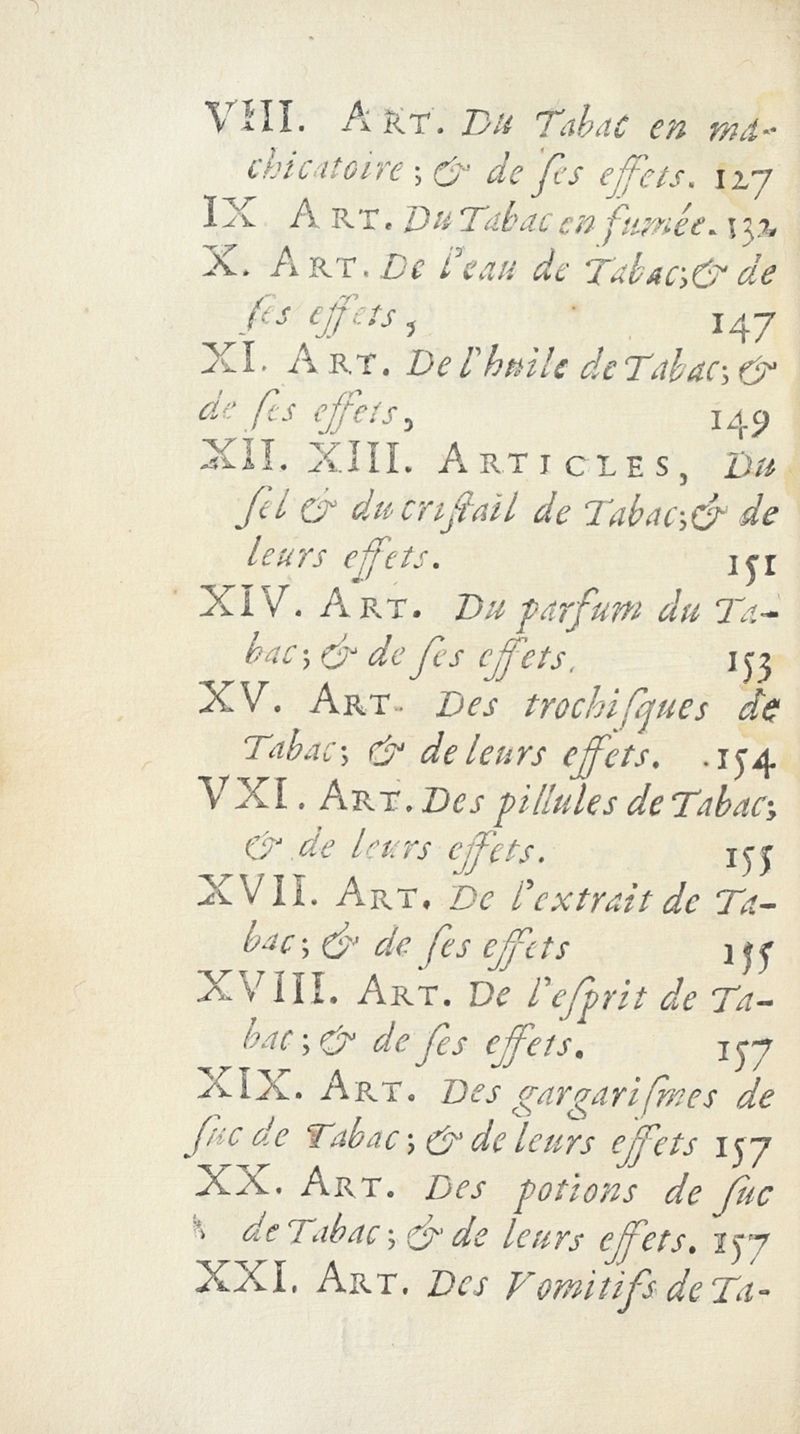 VIII. ART. Du Tabac en ma-
chicatoire ; & de ſes effets. 127
IX ART. Du Tabac en fumée. 132
X. ART. De l'eau de Tabac; & de
ſes effets, 147
XI. ART. De l'huile de Tabac; &
de ſes effets, 149
XII. XIII. ARTICLES, Du
ſel & du criſtail de Tabac; & de
leurs effets. 151
XIV. ART. Du parfum du Ta-
bac; & de ſes effets. 153
XV. ART. Des trochiſques de
Tabac; & de leurs effets. .154
VXI. ART. Des pillules de Tabac;
& de leurs effets. 155
XVII. ART. De l'extrait de Ta-
bac; & de ſes effets 155
XVIII. ART. De l'eſprit de Ta-
bac; & de ſes effets. 157
XIX. ART. Des gargariſmes de
ſuc de Tabac; & de leurs effets 157
XX. ART. Des potions de ſuc
de Tabac; & de leurs effets. 157
XXI. ART. Des Vomitifs de Ta-